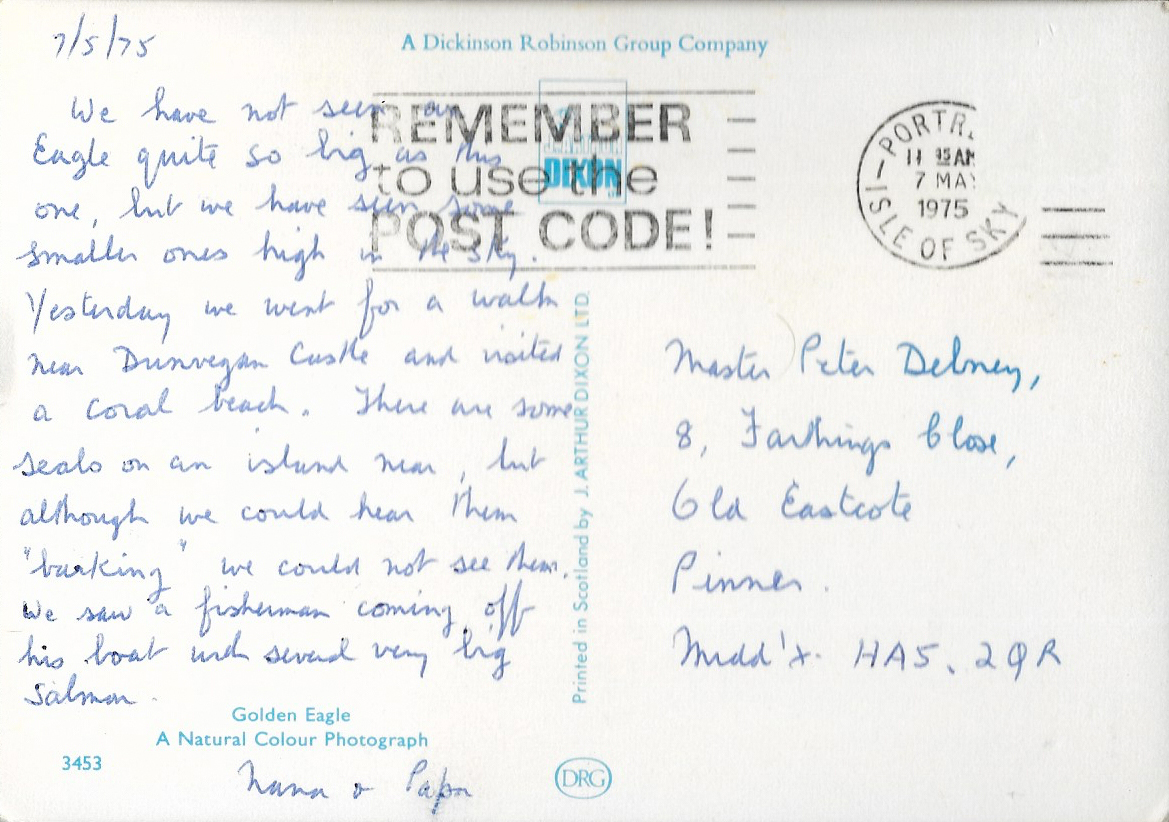 7/5/75
A Dickinson Robinson Group Company
We have not seen an
Eagle quite so big as this
one, but we have seen some
smaller ones high in the sky.
Yesterday we went for a walk
near Dunvegan Castle and visited
a coral beach. There are some
seals on an island near, but
although we could hear them
"barking" we could not see them.
We saw a fisherman coming off
his boat with several very big
salmon.
Golden Eagle
A Natural Colour Photograph
3453
Nana & Papa
REMEMBER
to use the
POST CODE!
DIXON
Printed in Scotland by J. ARTHUR DIXON LTD.
DRG
PORTR
11 15 AM
7 MAY
1975
ISLE OF SKY
Master Peter Debney,
8, Farthings Close,
Old Eastcote
Pinner.
Midd'x. HA5. 2QR